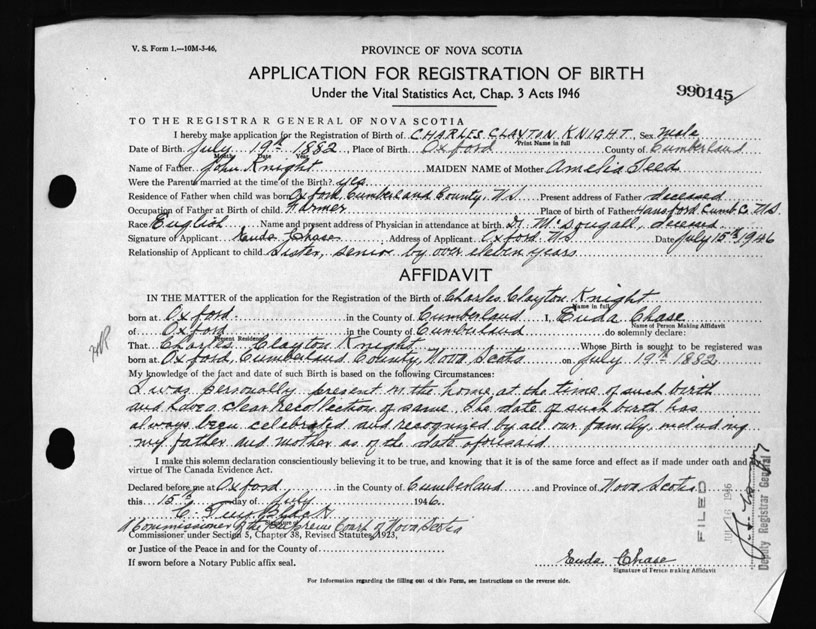 V. S. Form 1.—10M-3-46,
PROVINCE OF NOVA SCOTIA
APPLICATION FOR REGISTRATION OF BIRTH
Under the Vital Statistics Act, Chap. 3 Acts 1946
990145
TO THE REGISTRAR GENERAL OF NOVA SCOTIA
I hereby make application for the Registration of Birth of CHARLES CLAYTON KNIGHT Sex male
Print Name in full
Date of Birth July 19th 1882, Place of Birth Oxford County of Cumberland
Month Date Year
Name of Father John Knight MAIDEN NAME of Mother Amelia Teed
Were the Parents married at the time of the Birth? yes
Residence of Father when child was born Oxford, Cumberland County, N.S. Present address of Father deceased
Occupation of Father at Birth of child Farmer Place of birth of Father Hansford Cumb. C. N.S.
Race English Name and present address of Physician in attendance at birth Dr McDougall, deceased
Signature of Applicant Euda Chase Address of Applicant Oxford N.S. Date July 15th 1946
Relationship of Applicant to child Sister, senior by over eleven years
AFFIDAVIT
IN THE MATTER of the application for the Registration of the Birth of Charles Clayton Knight
Name in full
born at Oxford in the County of Cumberland I, Euda Chase
Name of Person Making Affidavit
of Oxford in the County of Cumberland do solemnly declare:
Present Residence
That Charles Clayton Knight Whose Birth is sought to be registered was
born at Oxford, Cumberland County, Nova Scotia on July 19th 1882
My knowledge of the fact and date of such Birth is based on the following Circumstances:
I was personally present in the home at the time of such birth
and have a clear recollection of same. The date of such birth has
always been celebrated and recognized by all our family, including
my father and mother as of the date aforesaid.
I make this solemn declaration conscientiously believing it to be true, and knowing that it is of the same force and effect as if made under oath and by
virtue of The Canada Evidence Act.
Declared before me at Oxford in the County of Cumberland and Province of Nova Scotia
this 15th day of July 1946.
A Commissioner of the Supreme Court of Nova Scotia
Commissioner under Section 5, Chapter 38, Revised Statutes, 1923,
or Justice of the Peace in and for the County of
If sworn before a Notary Public affix seal.
Euda Chase
Signature of Person making Affidavit
FILED
1946
Deputy Registrar General
For Information regarding the filling out of this Form, see Instructions on the reverse side.